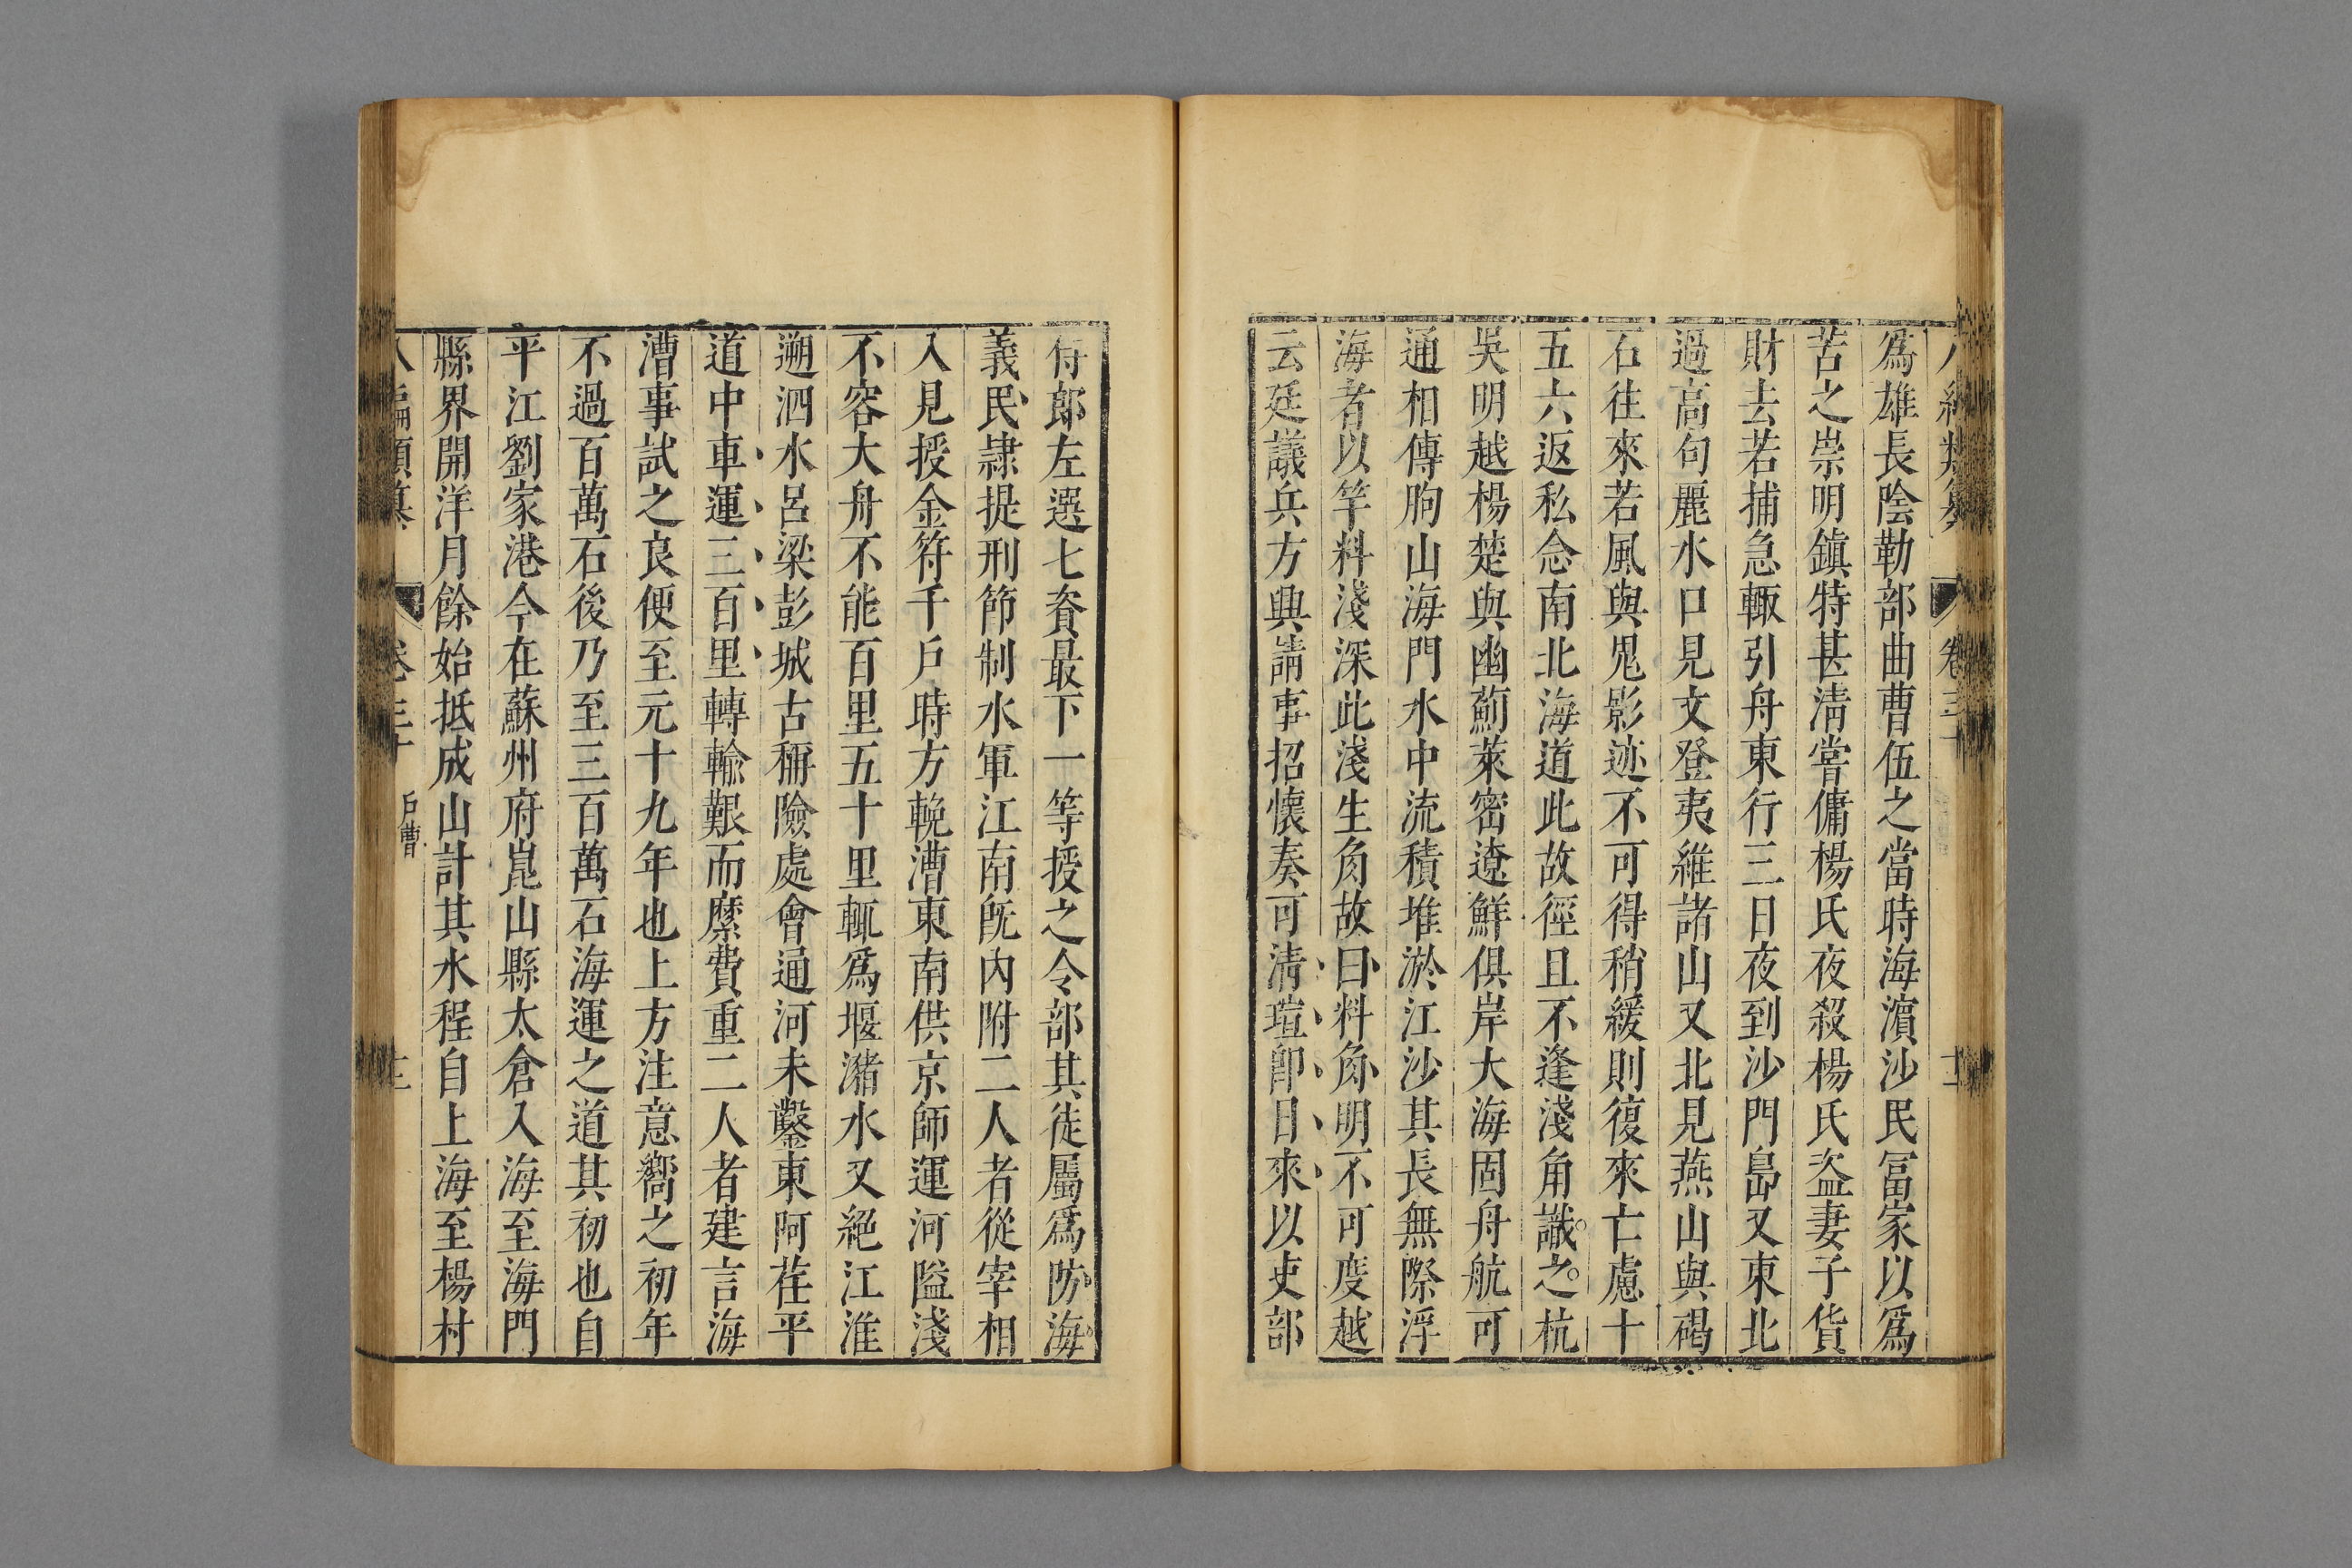 爲雄長陰勒部曲曹伍之當時海濵沙民冨家以爲
苦之崇明鎮特甚淸嘗傭楊氏夜殺楊氏盗妻子貨
財去若捕急輙引舟東行三日夜到沙門島又東北
過高句麗水口見文登夷維諸山又北見燕山與碣
石往來若風與鬼影迹不可得稍緩則復來亡慮十
五六返私念南北海道此故徑且不逢淺角識之杭
吳明越楊楚與幽薊萊密遼鮮俱岸大海固舟航可
通相傳朐山海門水中流積堆淤江沙其長無際浮
海者以竿料淺深此淺生角故曰料角明不可度越
云廷議兵方興請事招懷奏可淸瑄卽日來以吏部
侍郎左選七資最下一等授之令部其徒屬爲防海
義民隷提刑節制水軍江南旣内附二人者從宰相
入見授金符千戶時方輓漕東南供京師運河隘淺
不容大舟不能百里五十里輒爲堰瀦水又絕江淮
遡泗水呂梁彭城古稱險處會通河未鑿東阿茌平
道中車運三百里轉輸艱而縻費重二人者建言海
漕事試之良便至元十九年也上方注意嚮之初年
不過百萬石後乃至三百萬石海運之道其初也自
平江劉家港今在蘇州府崑山縣太倉入海至海門
縣界開洋月餘始抵成山計其水程自上海至楊村
戶曹